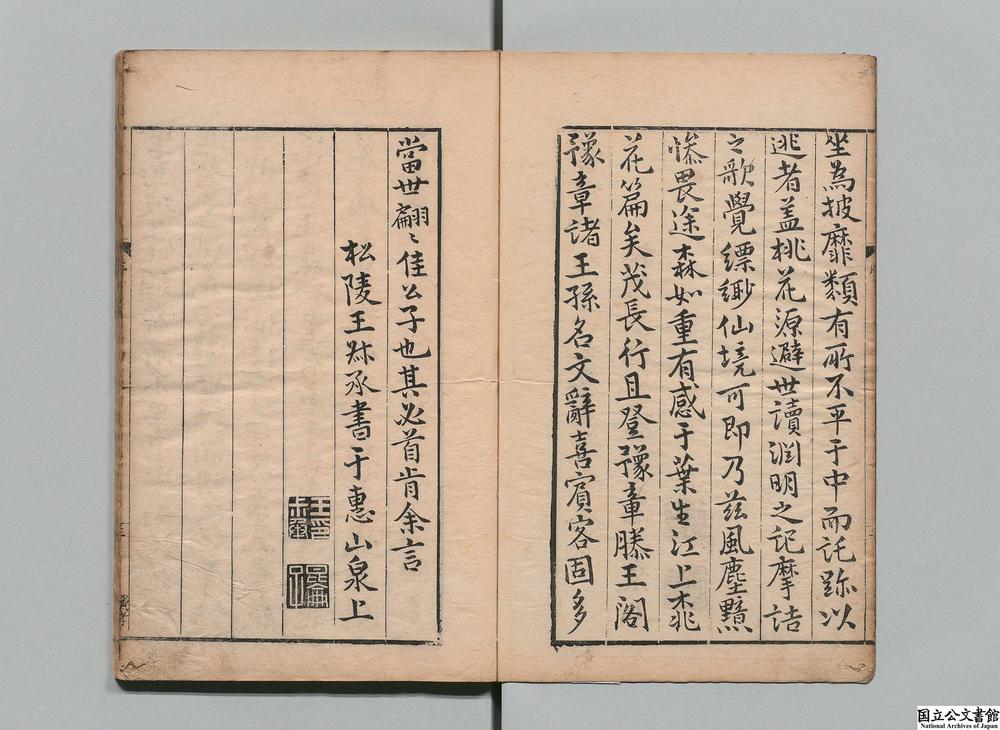 坐為披靡類有所不平于中而託跡以
逃者蓋桃花源避世讀淵明之記摩詰
之歌覺縹緲仙境可即乃茲風塵黯
慘畏途森如重有感于葉生江上桃
花篇矣茂長行且登豫章滕王閣
豫章諸王孫名文辭喜賓客固多
當世翩〻佳公子也其必首肯余言
松陵王穉承書于惠山泉上
国立公文書館
National Archives of Japan